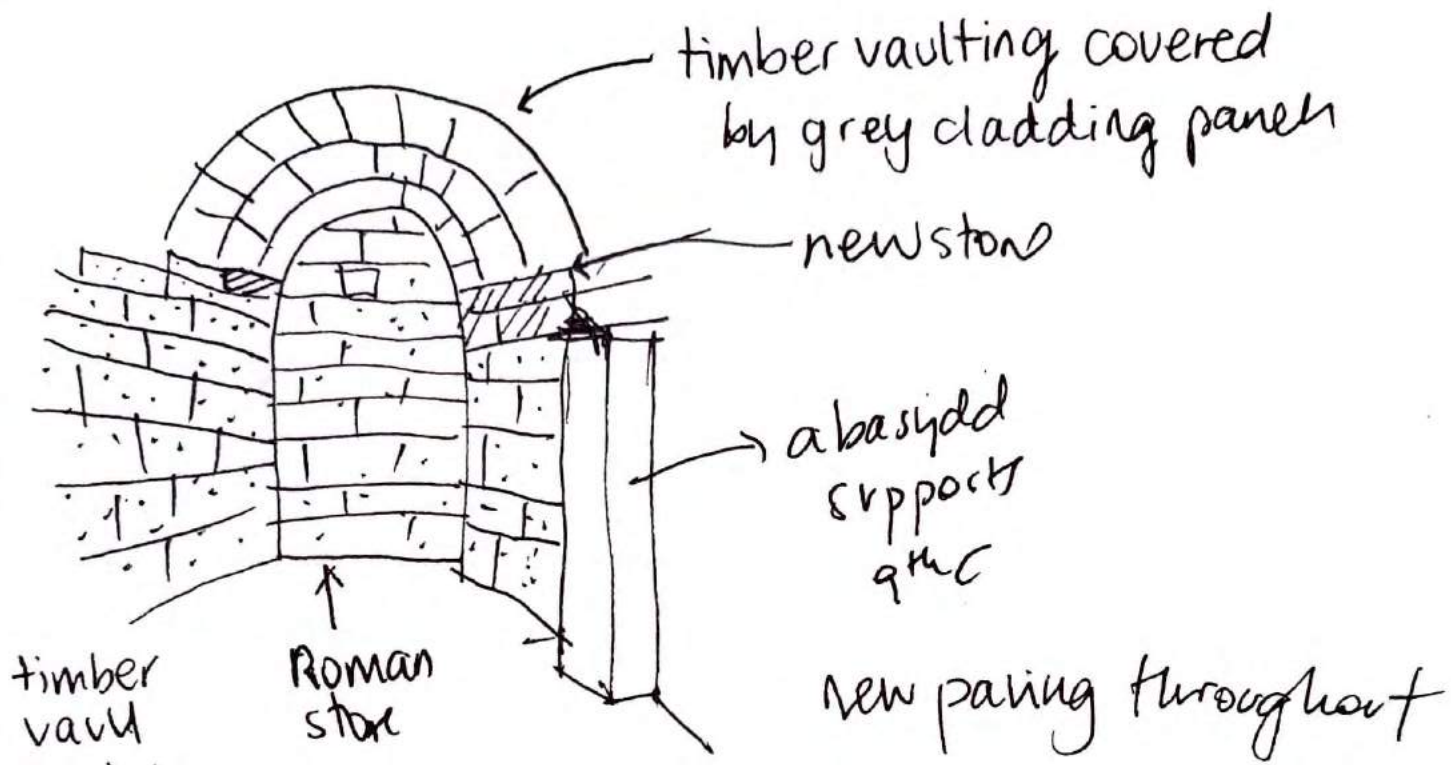 timber vaulting covered
by grey cladding panels
new stone
abasydd
supports
9th C
timber
vault
Roman
stone
new paving throughout